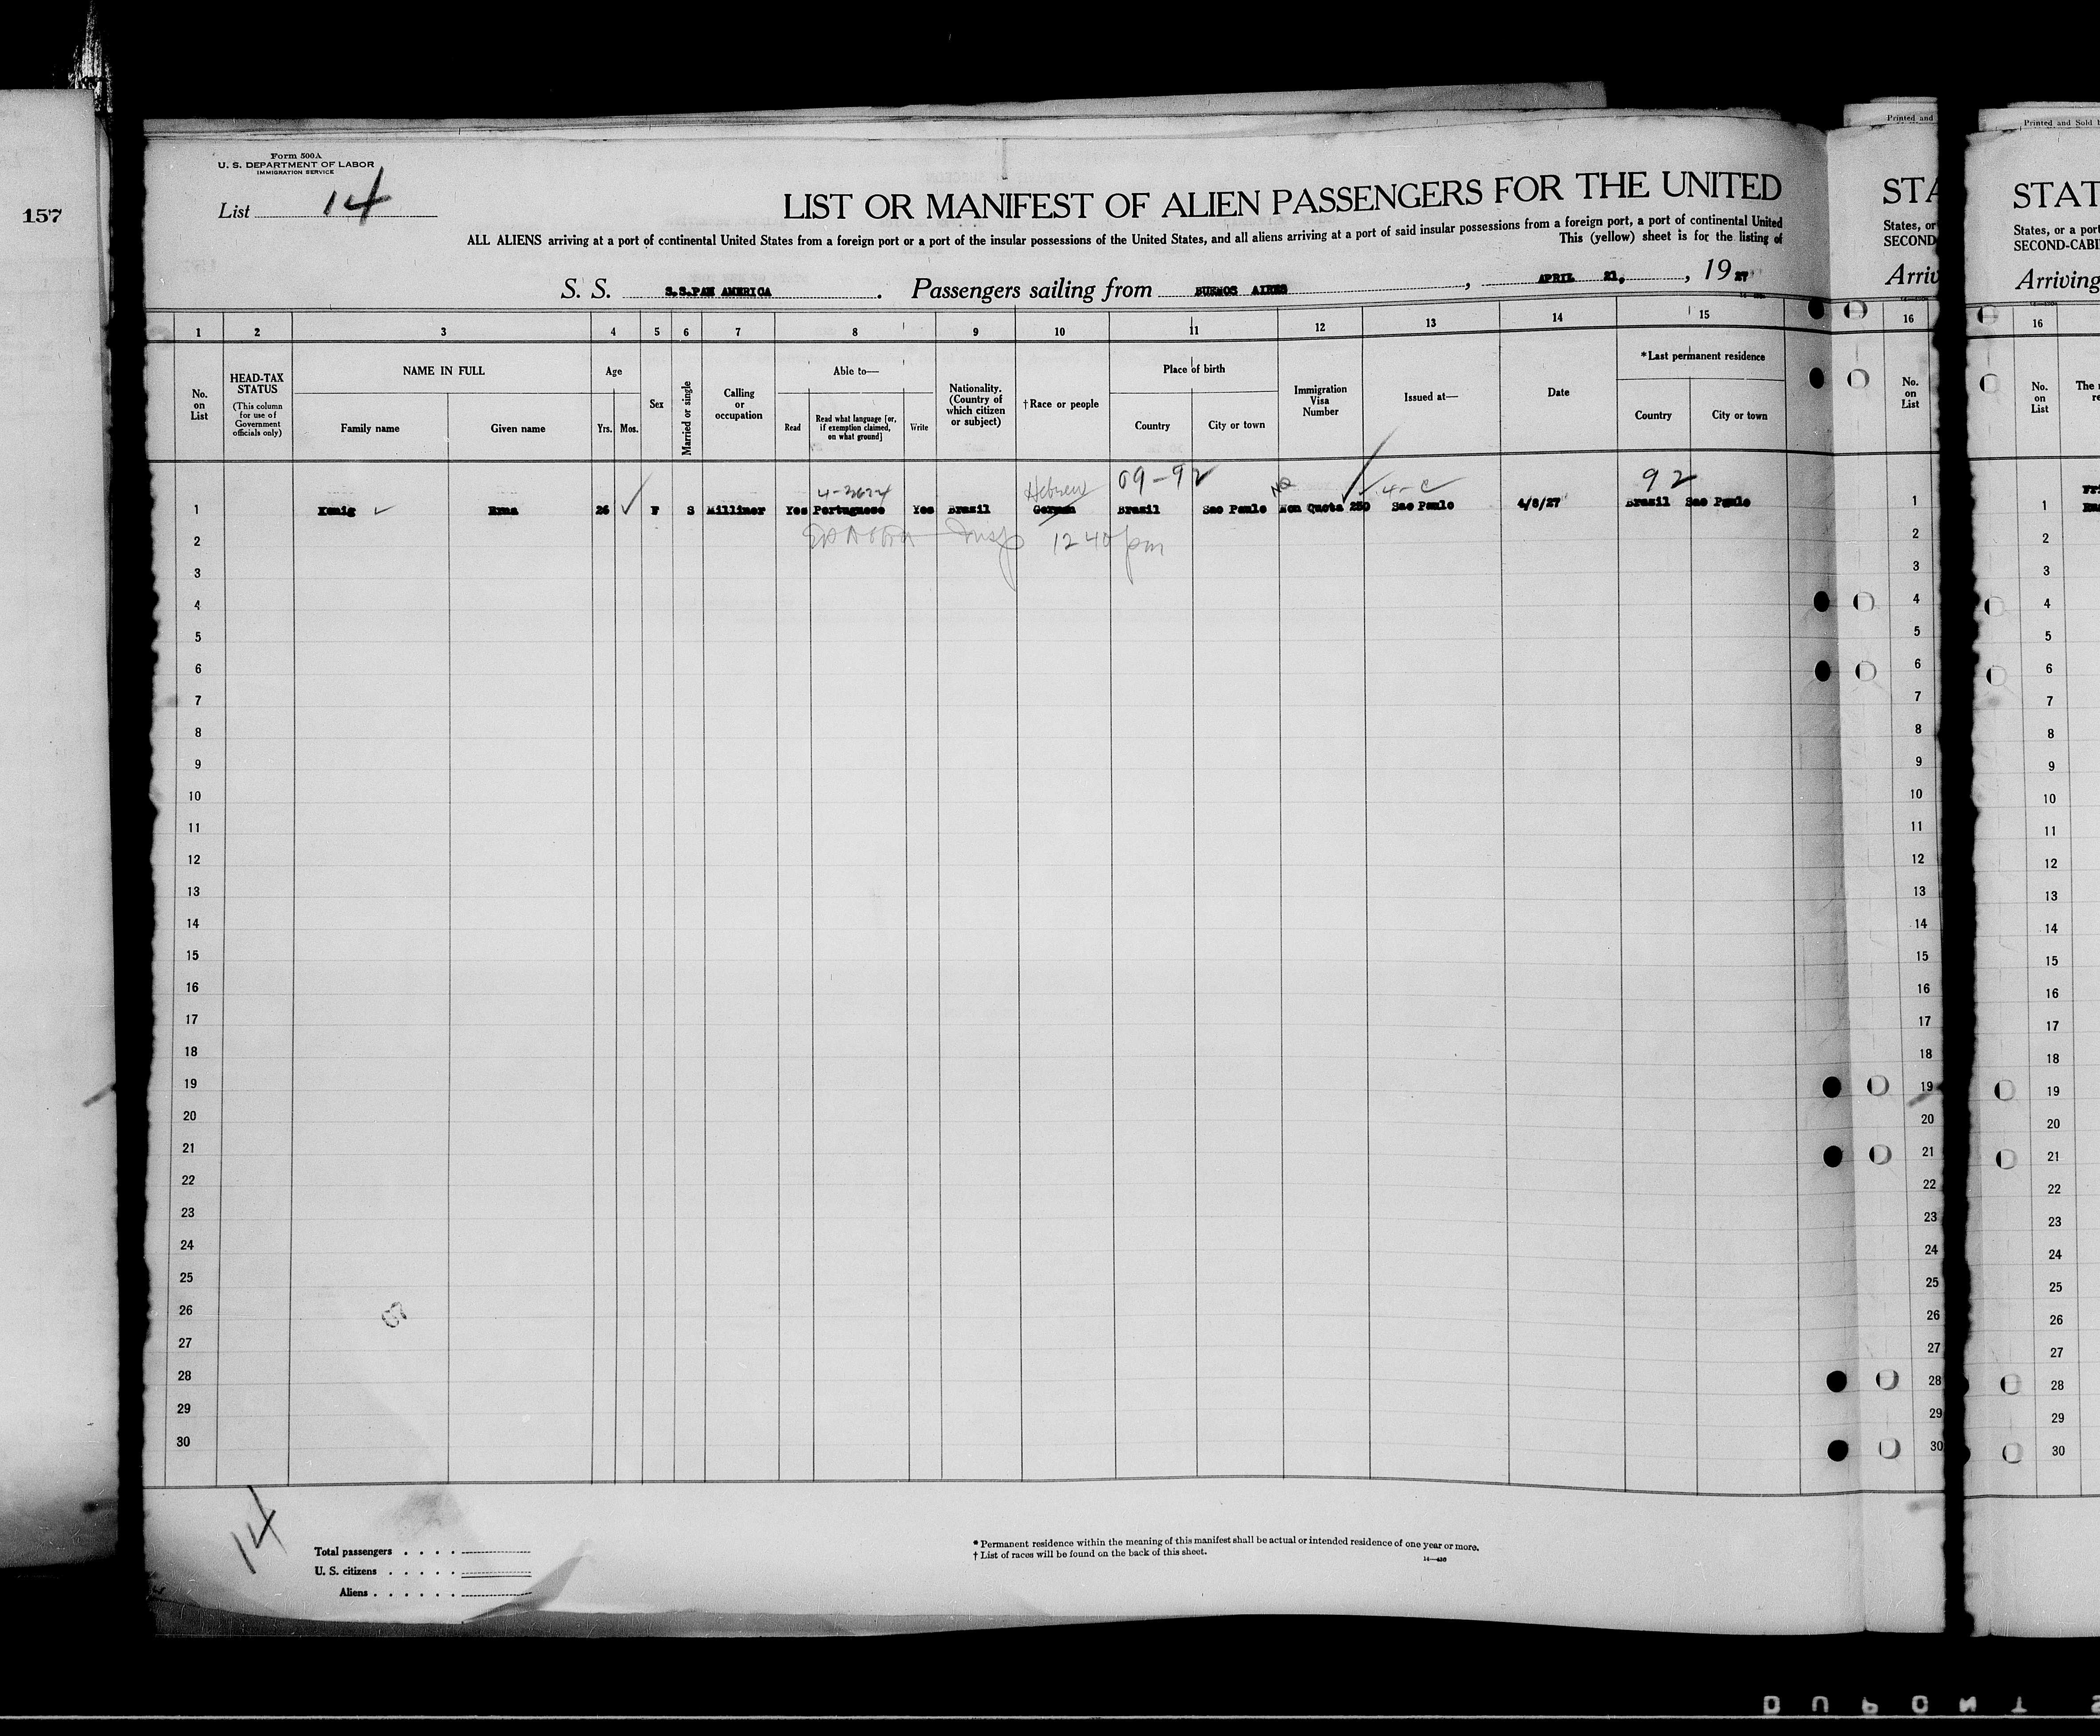 157
Form 500A
U. S. DEPARTMENT OF LABOR
IMMIGRATION SERVICE
List 14
LIST OR MANIFEST OF ALIEN PASSENGERS FOR THE UNITED
ALL ALIENS arriving at a port of continental United States from a foreign port or a port of the insular possessions of the United States, and all aliens arriving at a port of said insular possessions from a foreign port, a port of continental United
This (yellow) sheet is for the listing of
S. S. S.S.PAN AMERICA. Passengers sailing from BUENOS AIRES, APRIL 21, , 1927
1 2 3 4 5 6 7 8 9 10 11 12 13 14 15
No. on List
HEAD-TAX STATUS
(This column for use of Government officials only)
NAME IN FULL
Family name
Given name
Age
Yrs. Mos.
Sex
Married or single
Calling or occupation
Able to—
Read
Read what language [or, if exemption claimed, on what ground]
Write
Nationality. (Country of which citizen or subject)
†Race or people
Place of birth
Country
City or town
Immigration Visa Number
Issued at—
Date
*Last permanent residence
Country
City or town
Hebrew 09-92 NQ 4-C 92
1 Konig Erna 26 F S Milliner Yes Portuguese Yes Brazil German Brazil Sao Paulo Non Quota 250 Sao Paulo 4/8/27 Brazil Sao Paulo
2 Insp 12 40 pm
3
4
5
6
7
8
9
10
11
12
13
14
15
16
17
18
19
20
21
22
23
24
25
26
27
28
29
30
14
Total passengers
U. S. citizens
Aliens
* Permanent residence within the meaning of this manifest shall be actual or intended residence of one year or more.
† List of races will be found on the back of this sheet.
Printed and
STA
States, or
SECOND
Arriv
16
No. on List
1
2
3
4
5
6
7
8
9
10
11
12
13
14
15
16
17
18
19
20
21
22
23
24
25
26
27
28
29
30
Printed and Sold b
STAT
States, or a port
SECOND-CABI
Arriving
16
No. on List
The
1
2
3
4
5
6
7
8
9
10
11
12
13
14
15
16
17
18
19
20
21
22
23
24
25
26
27
28
29
30
DUPONT